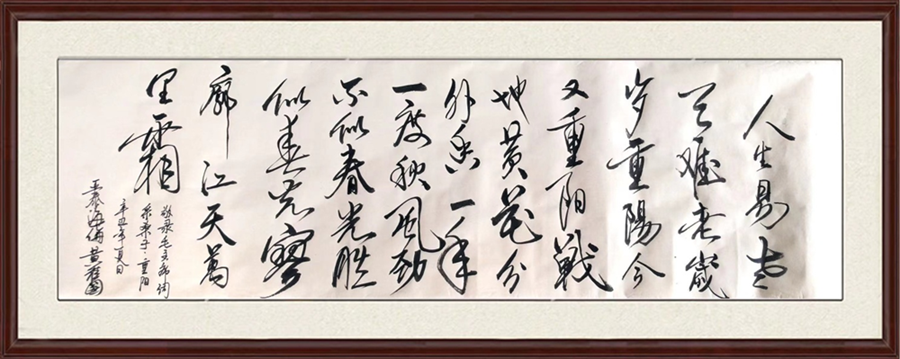 人生易老
天难老歲
岁重陽今
又重阳戰
地黄花分
外香一年
一度秋风劲
不似春光胜
似春光寥
廓江天萬
里霜
敬录毛主席词
采桑子·重阳
辛丑年夏日